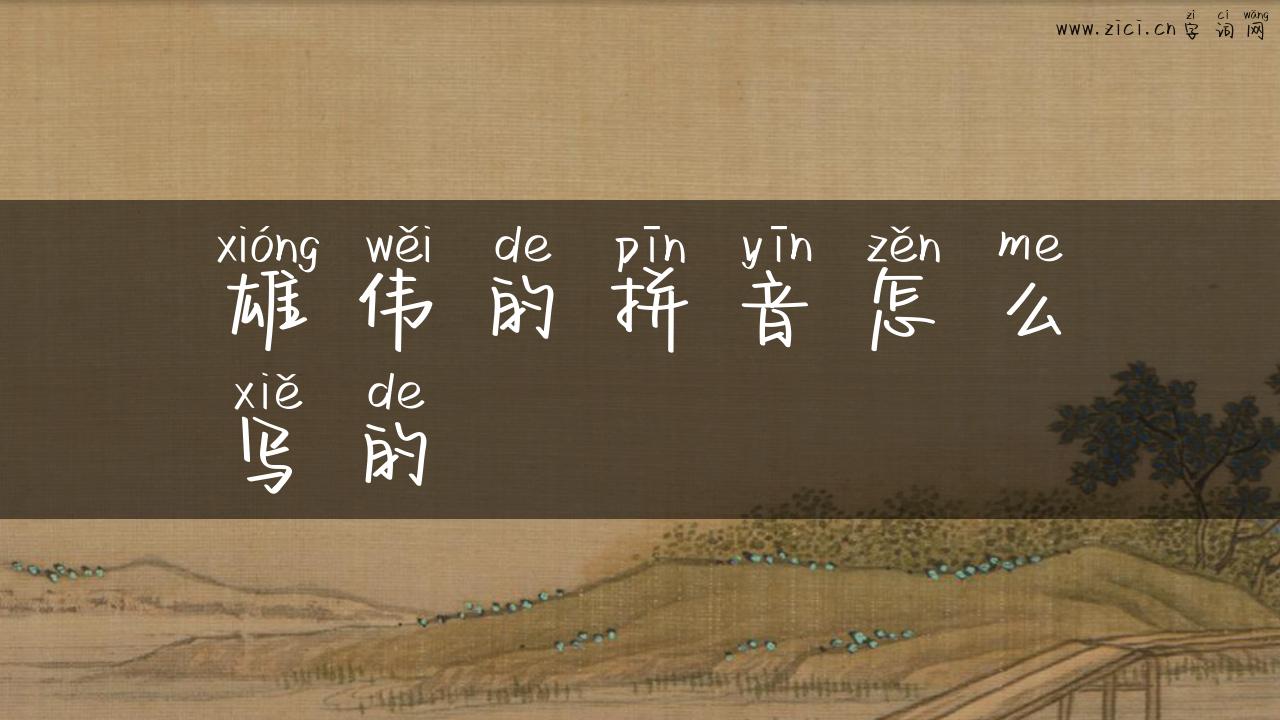 zì cí wǎng
www.zici.cn字词网
xióng wěi de pīn yīn zěn me
雄伟的拼音怎么
xiě de
写的